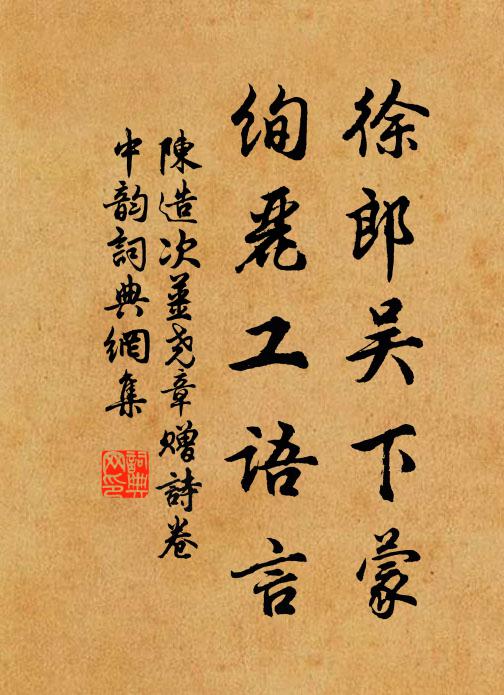 徐郎吴下蒙
绚麗工语言
陳造次姜尧章赠詩卷
中韵詞典網集
詞典网印